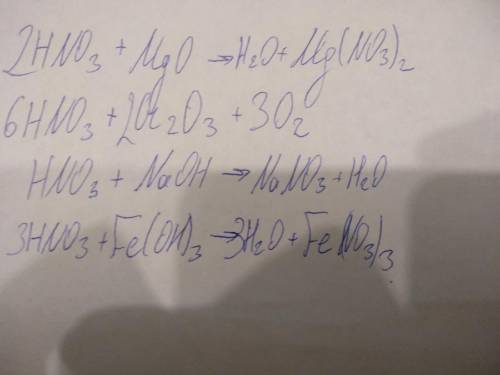 2HNO₃ + MgO → H₂O + Mg(NO₃)₂
6HNO₃ + 2Cr₂O₃ + 3O₂
HNO₃ + NaOH → NaNO₃ + H₂O
3HNO₃ + Fe(OH)₃ → 3H₂O + Fe(NO₃)₃